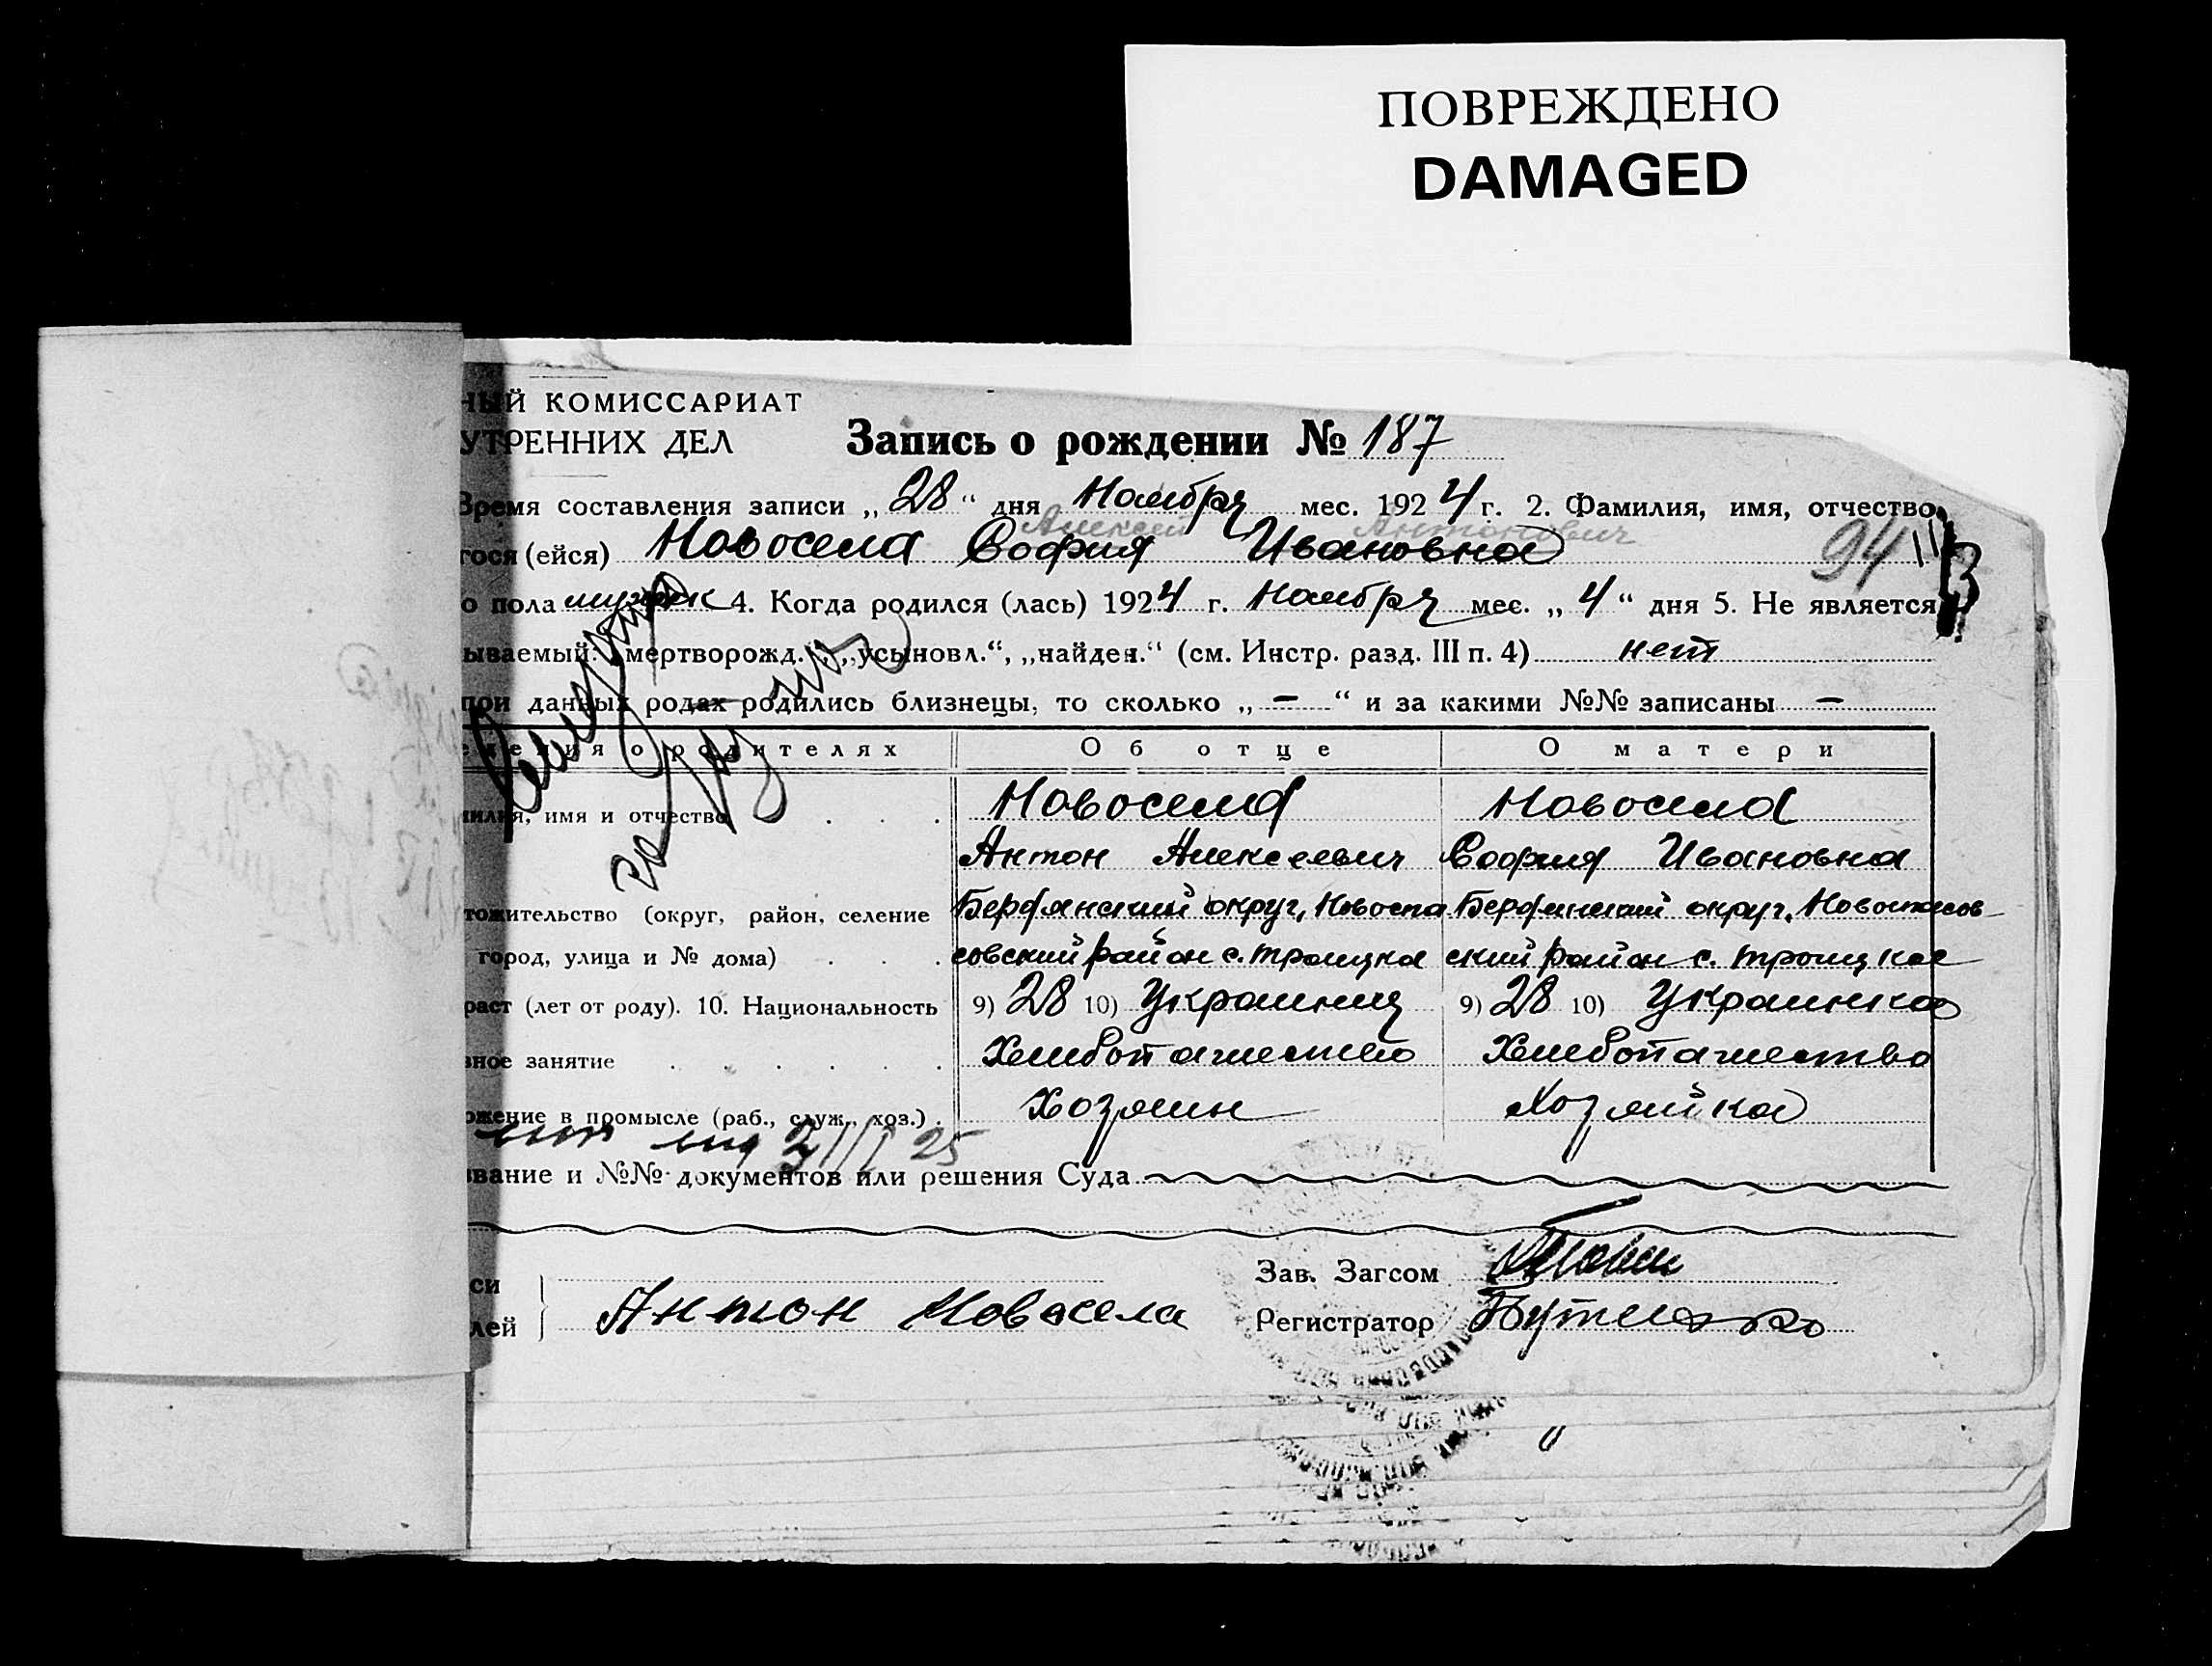 ПОВРЕЖДЕНО
DAMAGED
НЫЙ КОМИССАРИАТ
УТРЕННИХ ДЕЛ
Запись о рождении № 187
Время составления записи „28“ дня Ноября мес. 1924 г. 2. Фамилия, имя, отчество
Алексей Антонович
гося (ейся) Новосела София Ивановна 94
о пола мужск 4. Когда родился (лась) 1924 г. Ноября мес. „4“ дня 5. Не является
ываемый: „мертворожд.“, „усыновл.“, „найден.“ (см. Инстр. разд. III п. 4) нет
при данных родах родились близнецы, то сколько „—“ и за какими №№ записаны —
едения о родителях Об отце О матери
милия, имя и отчество Новосела Новосела
Антон Алексеевич София Ивановна
тожительство (округ, район, селение Бердянский округ, Новоспа Бердянский округ, Новоспасов
город, улица и № дома) совский район с. Троицка ский район с. Троицкае
раст (лет от роду). 10. Национальность 9) 28 10) Украинец 9) 28 10) Украинка
вное занятие Хлебопашество Хлебопашество
ожение в промысле (раб., служ., хоз.) Хозяин Хозяйка
звание и №№ документов или решения Суда
си Зав. Загсом
лей Антон Новосела Регистратор Бутенко